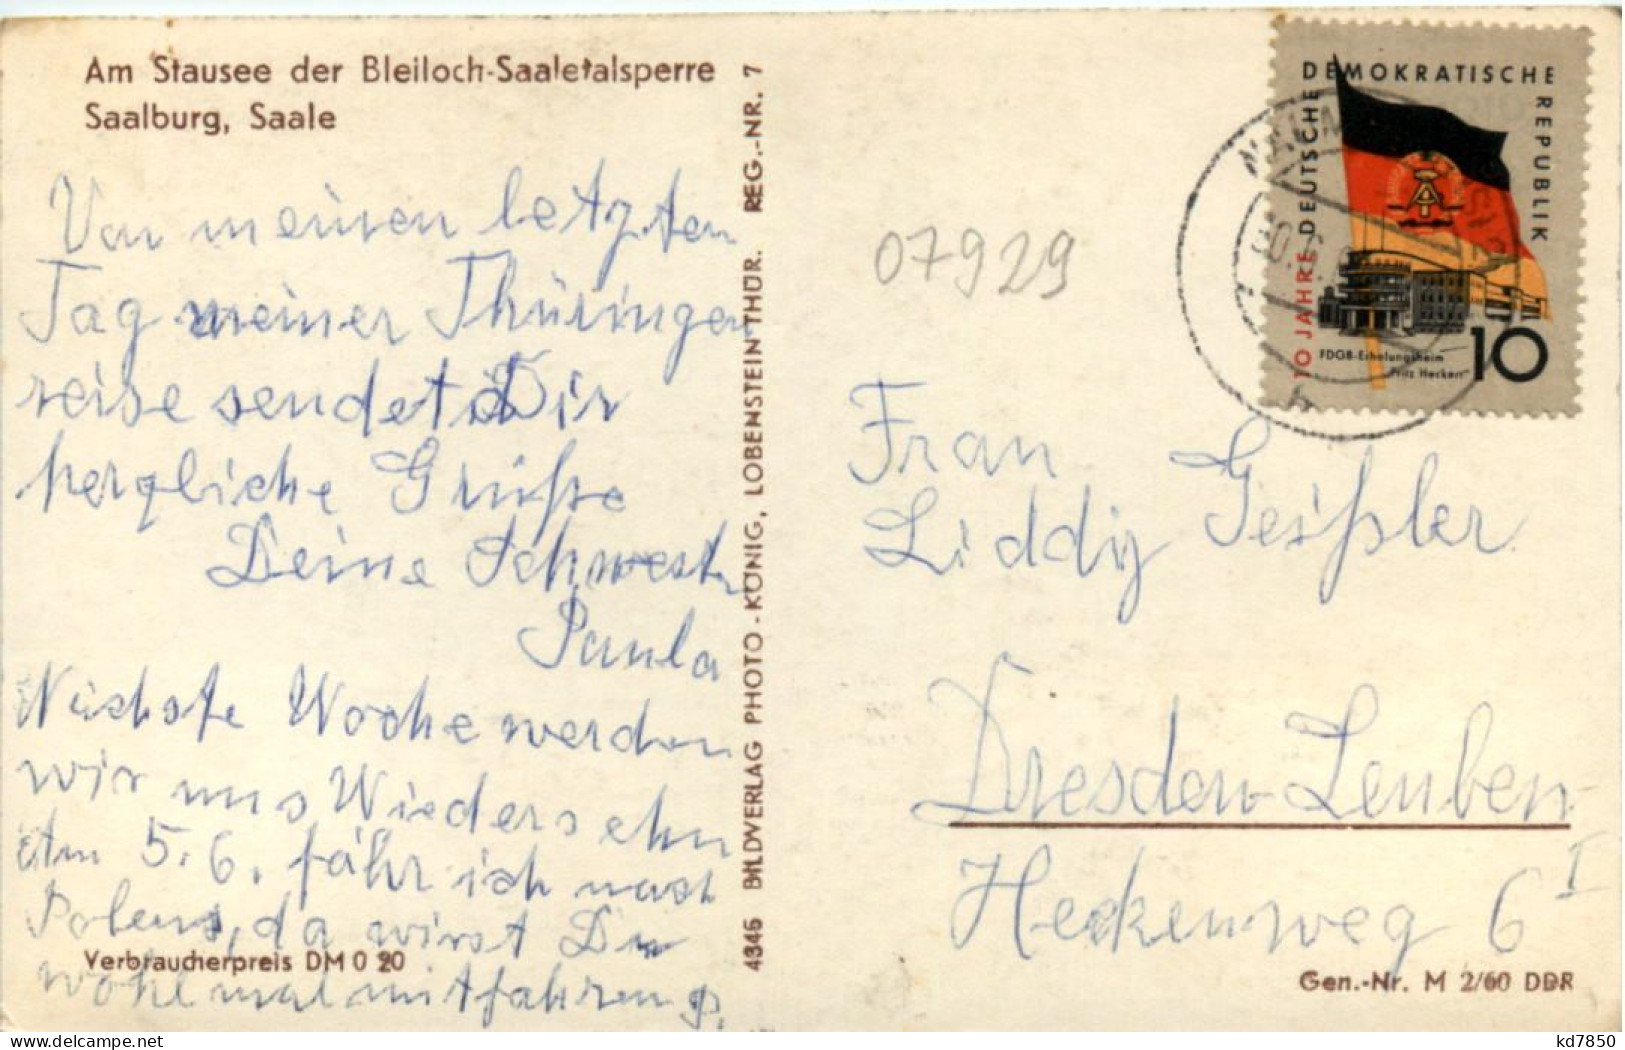 Am Stausee der Bleiloch-Saaletalsperre
Saalburg, Saale
Von meinen letzten
Tag meiner Thüringer
reise sendet Dir
herzliche Grüße
Deine Schwester
Paula
Nächste Woche werden
wir uns Wiedersehn
Am 5.6. fähr ich nach
da wirst Du
wohl mal mitfahren
Verbraucherpreis DM 0 20
4346 BILDVERLAG PHOTO-KÖNIG, LOBENSTEIN THÜR. REG.-NR. 7
07929
10 JAHRE DEUTSCHE DEMOKRATISCHE REPUBLIK
FDGB-Erholungsheim
"Fritz Heckert"
10
Frau
Liddy Geißler
Dresden-Leuben
Heckenweg 6 I
Gen.-Nr. M 2/60 DDR
kd7850